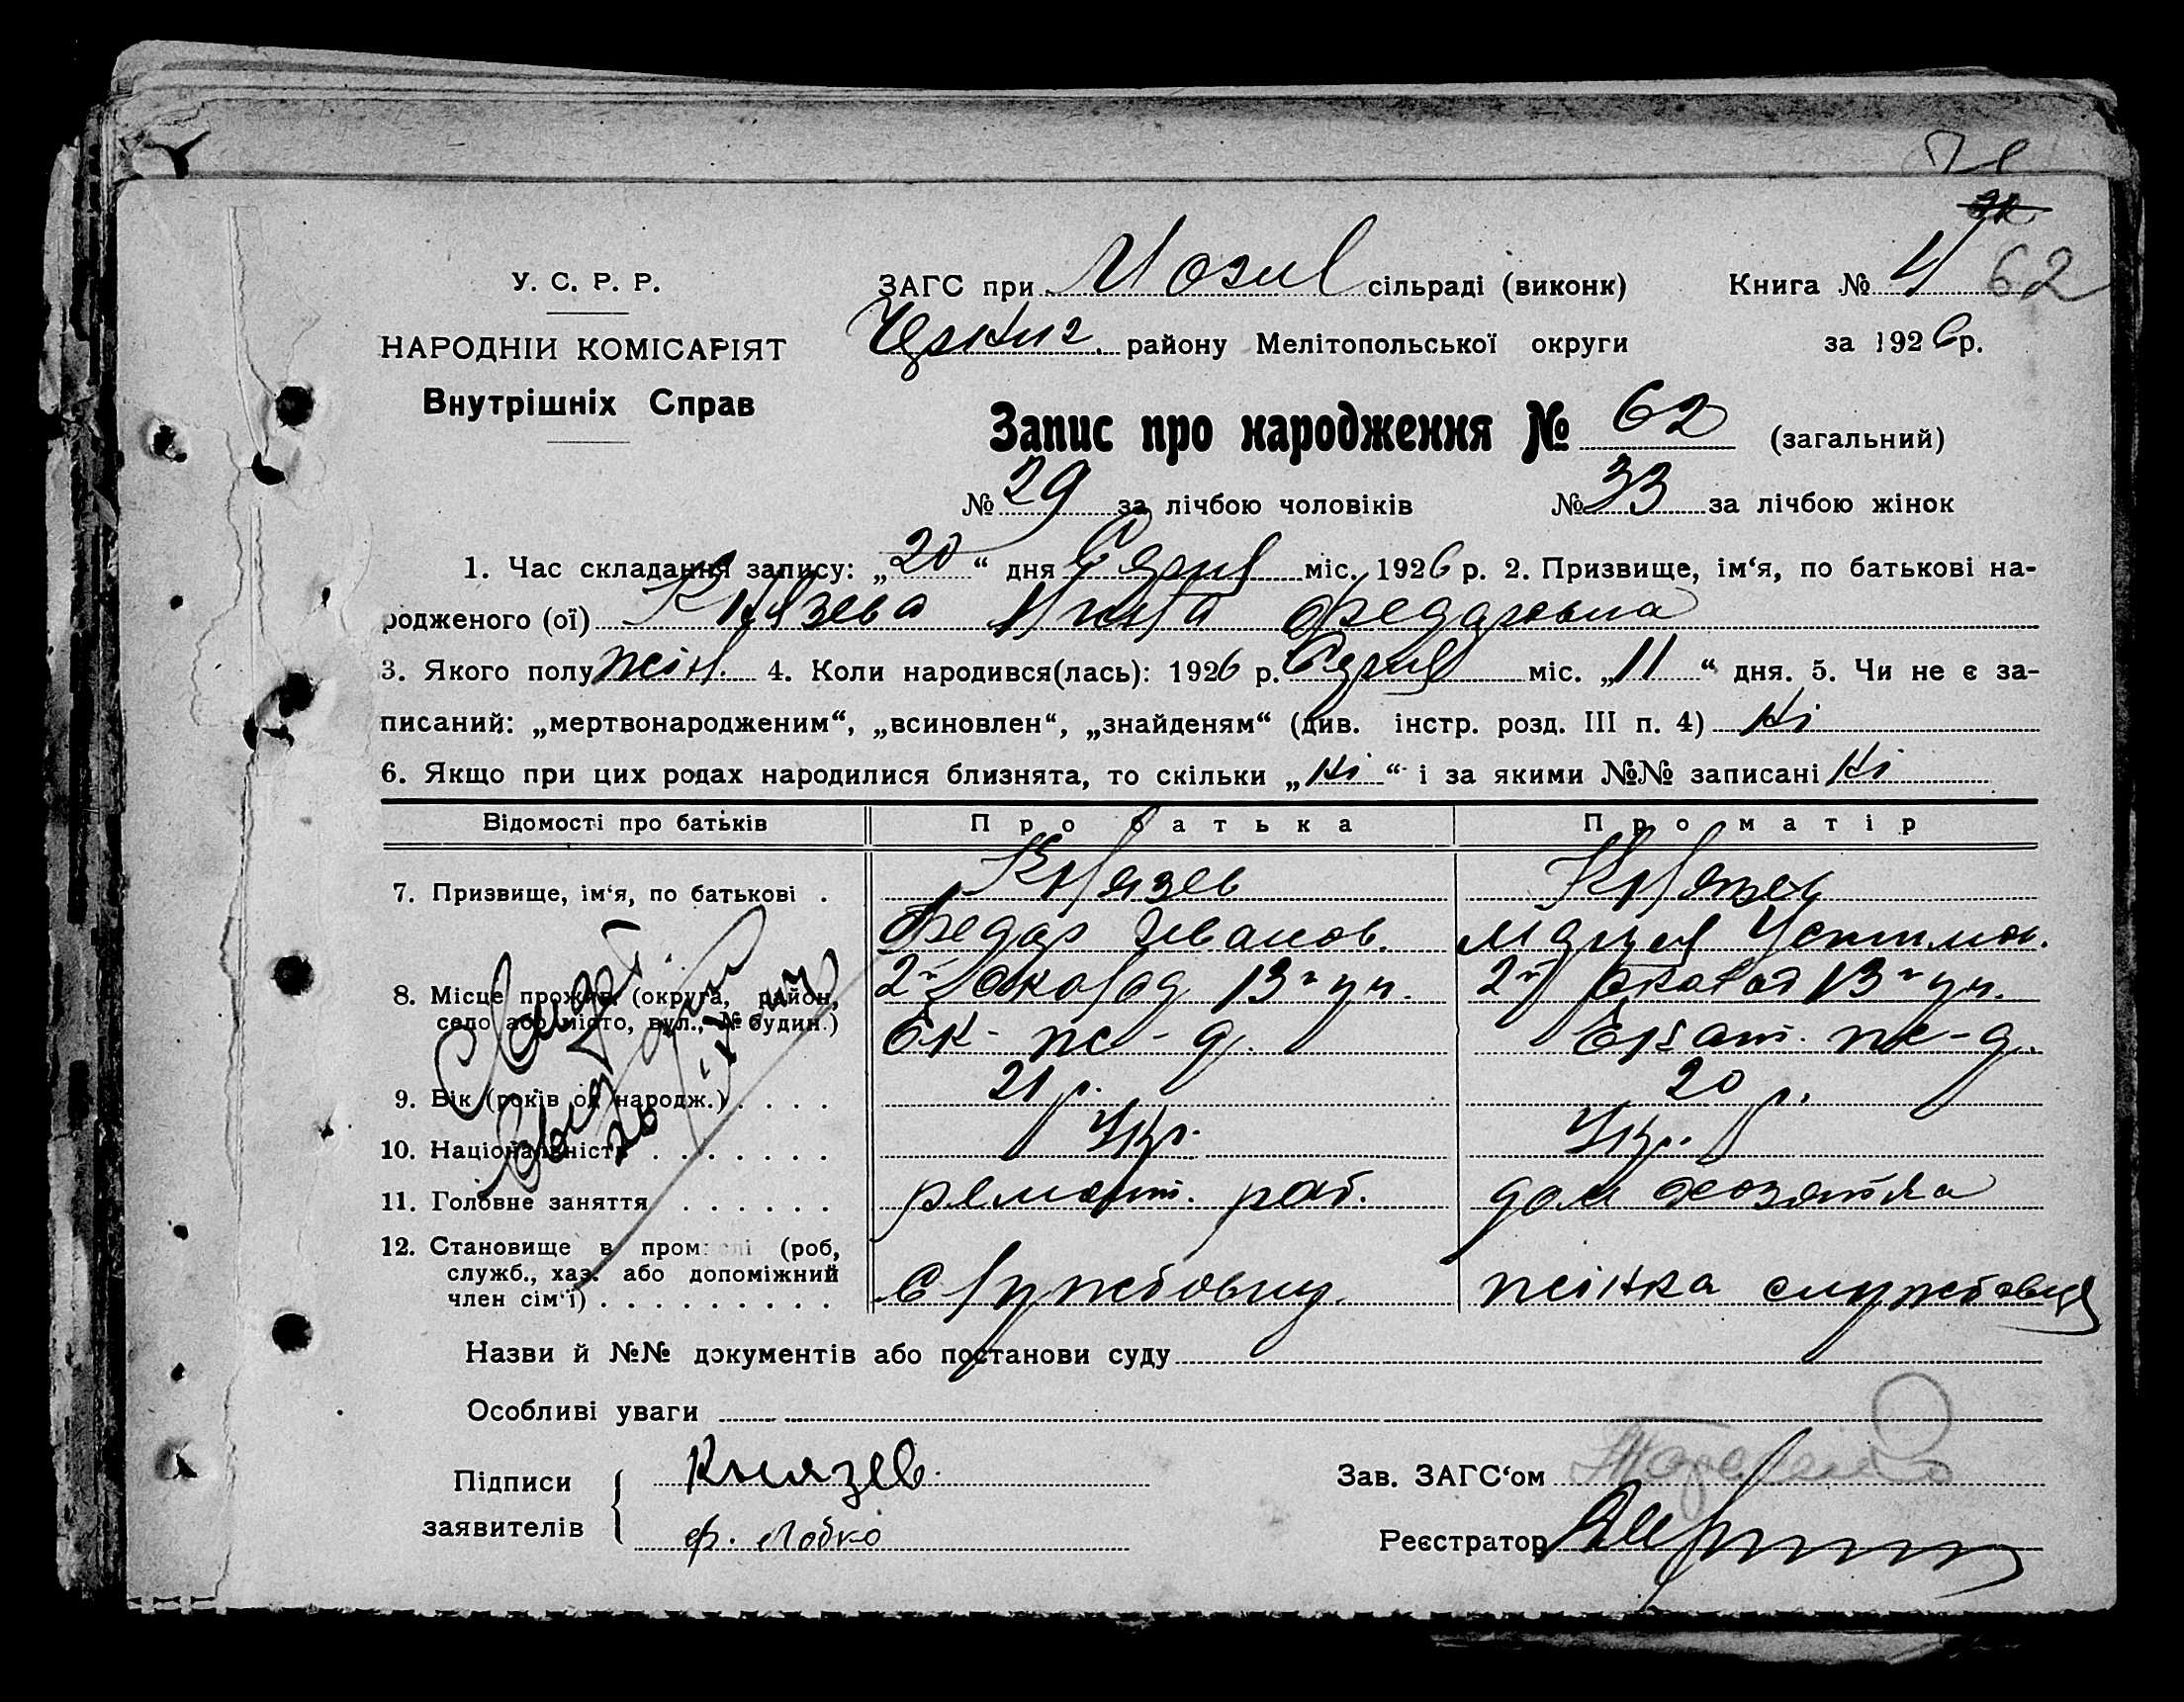 62
У. С. Р. Р.
НАРОДНІЙ КОМІСАРІЯТ
Внутрішніх Справ
ЗАГС при сільраді (виконк) Книга № 4
району Мелітопольської округи за 1926 р.
Запис про народження № 62 (загальний)
№ 29 за лічбою чоловіків № 33 за лічбою жінок
1. Час складання запису: „20“ дня міс. 1926 р. 2. Призвище, ім‘я, по батькові на-
родженого (ої) Князева Федоровна
3. Якого полу жін. 4. Коли народився(лась): 1926 р. міс. „11“ дня. 5. Чи не є за-
писаний: „мертвонародженим“, „всиновлен“, „знайденям“ (див. інстр. розд. III п. 4) Ні
6. Якщо при цих родах народилися близнята, то скільки „Ні“ і за якими №№ записані Ні
Відомості про батьків Про батька Про матір
7. Призвище, ім‘я, по батькові . Князев
Федор Иванов. Мария Устимов.
8. Місце прожив. (округа, район, село або місто, вул., № будин.) 2й околод 13й уч. 2й околод 13й уч.
Ек- ж-д. Екат. ж-д.
9. Вік (років од народж.) . . . . 21 р. 20 р.
10. Національність . . . . . . . . Укр. Укр.
11. Головне заняття . . . . . . ремонт. раб. дом хозяйка
12. Становище в промислі (роб, служб., хаз. або допоміжний член сім‘ї) . . . . . . . . . Службовец. жінка службовця
Назви й №№ документів або постанови суду
Особливі уваги
Підписи заявителів Князев.
ф. Лобко
Зав. ЗАГС‘ом
Реєстратор